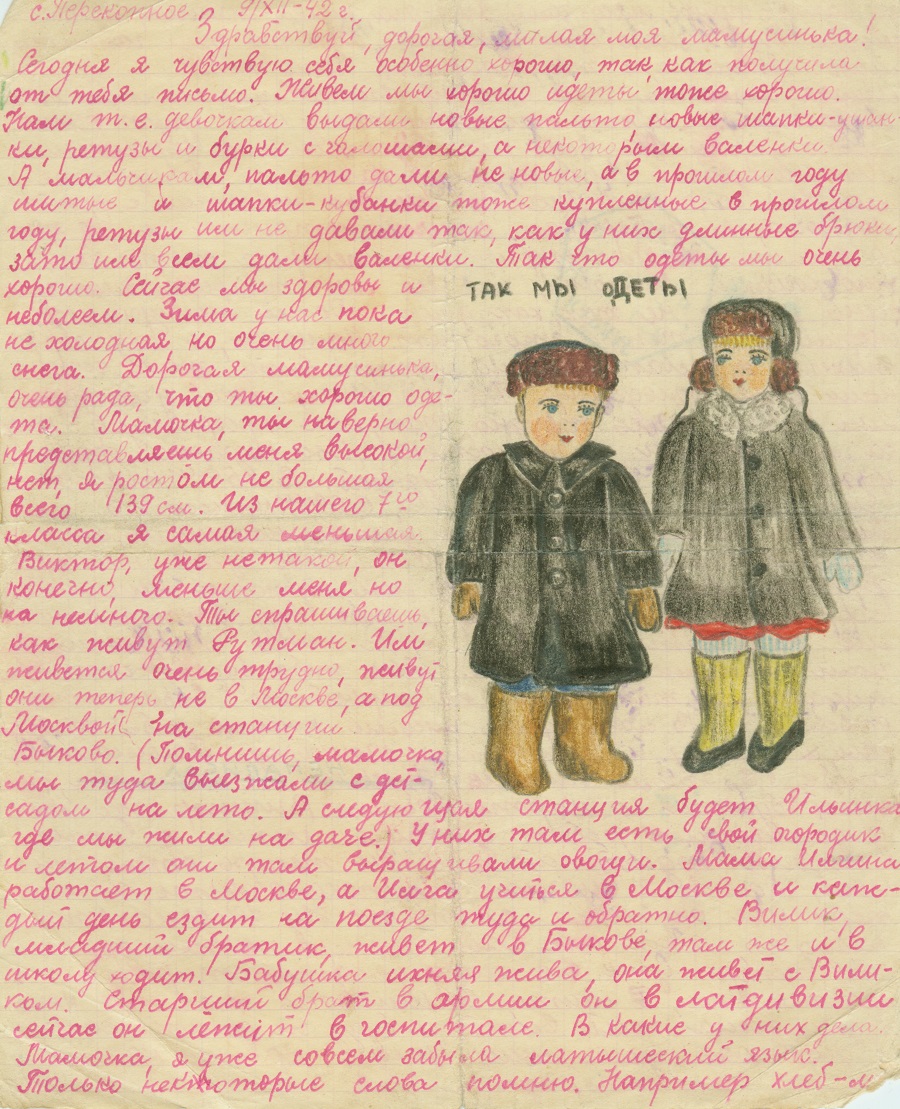 с. Перекопное 9/XII-42 г.
Здравствуй, дорогая, милая моя мамусинька!
Сегодня я чувствую себя особенно хорошо, так, как получила
от тебя письмо. Живем мы хорошо идеты тоже хорошо.
Нам т.е. девочкам выдали новые пальто, новые шапки-ушан-
ки, ретузы и бурки с галошами, а некоторым валенки.
А мальчикам, пальто дали не новые, а в прошлом году
шитые и шапки-кубанки тоже купленные в прошлом
году, ретузы им не давали так, как у них длинные брюки,
зато им всем дали валенки. Так что одеты мы очень
хорошо. Сейчас мы здоровы и
неболеем. Зима у нас пока
не холодная но очень много
снега. Дорогая мамусинька,
очень рада, что ты хорошо оде-
та. Мамочка, ты наверно
представляешь меня высокой,
нет, я ростом не большая
всего 139 см. Из нашего 7-го
класса я самая меньшая.
Виктор, уже нетакой, он
конечно, меньше меня, но
на немного. Ты спрашиваешь,
как живут Рутман. Им
живется очень трудно, живут
они теперь не в Москве, а под
Москвой на станции
Быково. (Помнишь, мамочка,
мы туда выезжали с дет-
садом на лето. А следующая станция будет Ильинка
где мы жили на даче.) У них там есть свой огородик
и летом они там выращивали овощи. Мама Илгина
работает в Москве, а Илга учиться в Москве и каж-
дый день ездит на поезде туда и обратно. Вилик,
младший братик, живет в Быкове, там же и в
школу ходит. Бабушка ихняя жива, она живет с Вили-
ком. Старший брат в армии он в латдивизии
сейчас он лежит в госпитале. В какие у них дела.
Мамочка, я уже совсем забыла латышский язык.
Только некоторые слова помню. Например хлеб-м
ТАК МЫ ОДЕТЫ